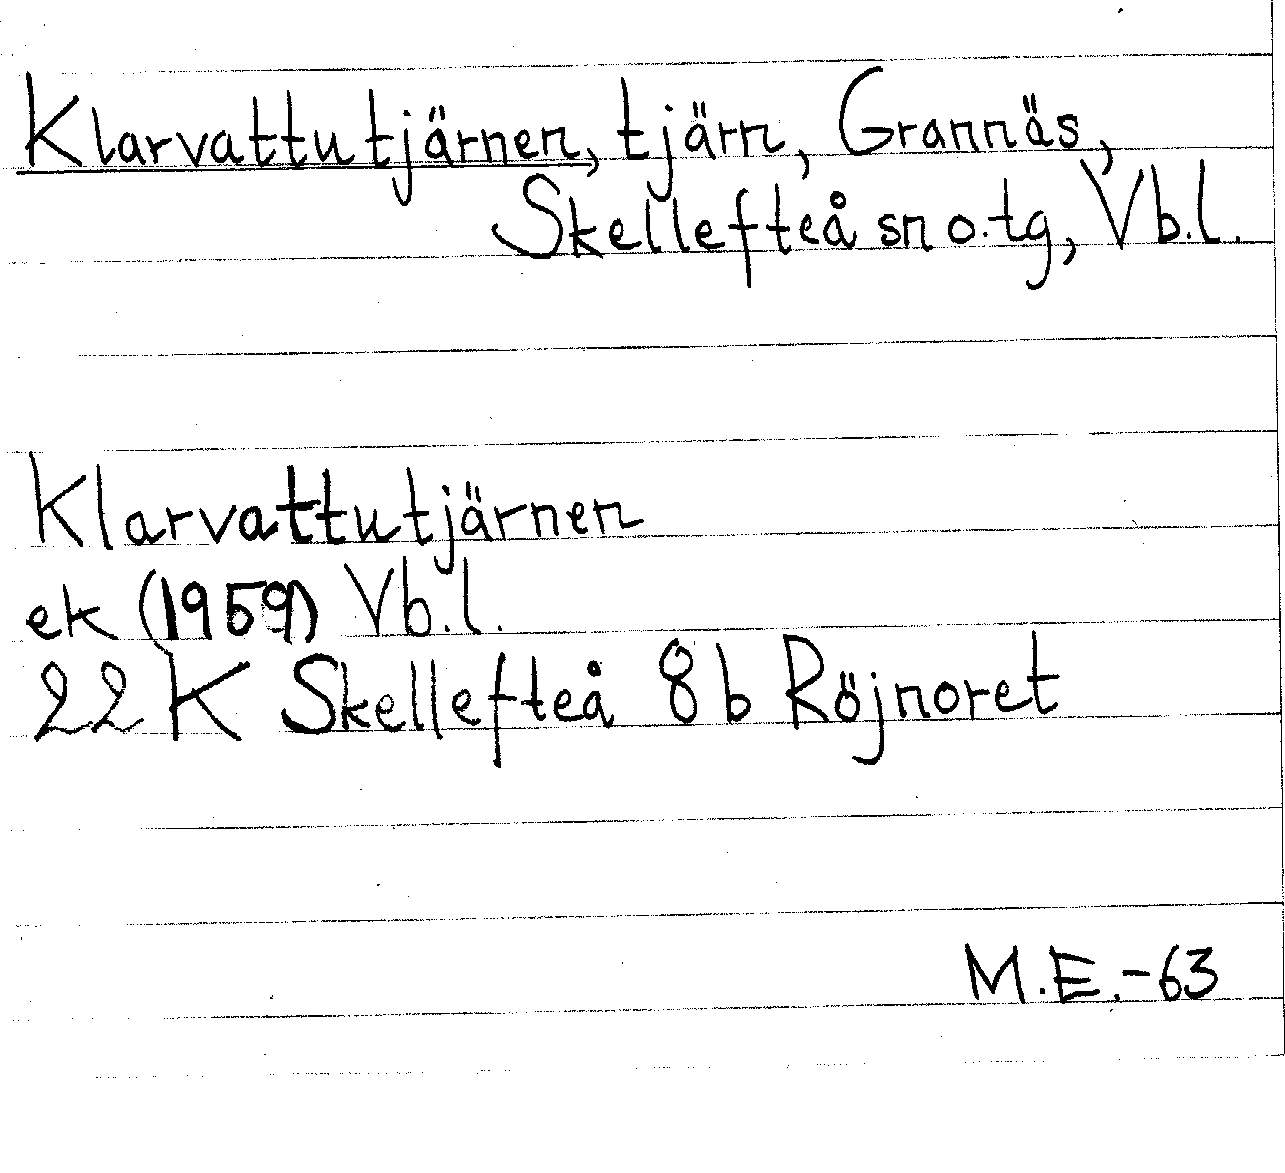 Klarvattutjärnen, tjärn, Grannäs,
Skellefteå sn o. tg, Vb.l.
Klarvattutjärnen
ek (1959) Vb.l.
22 K Skellefteå 8 b Röjnoret
M.E.-63